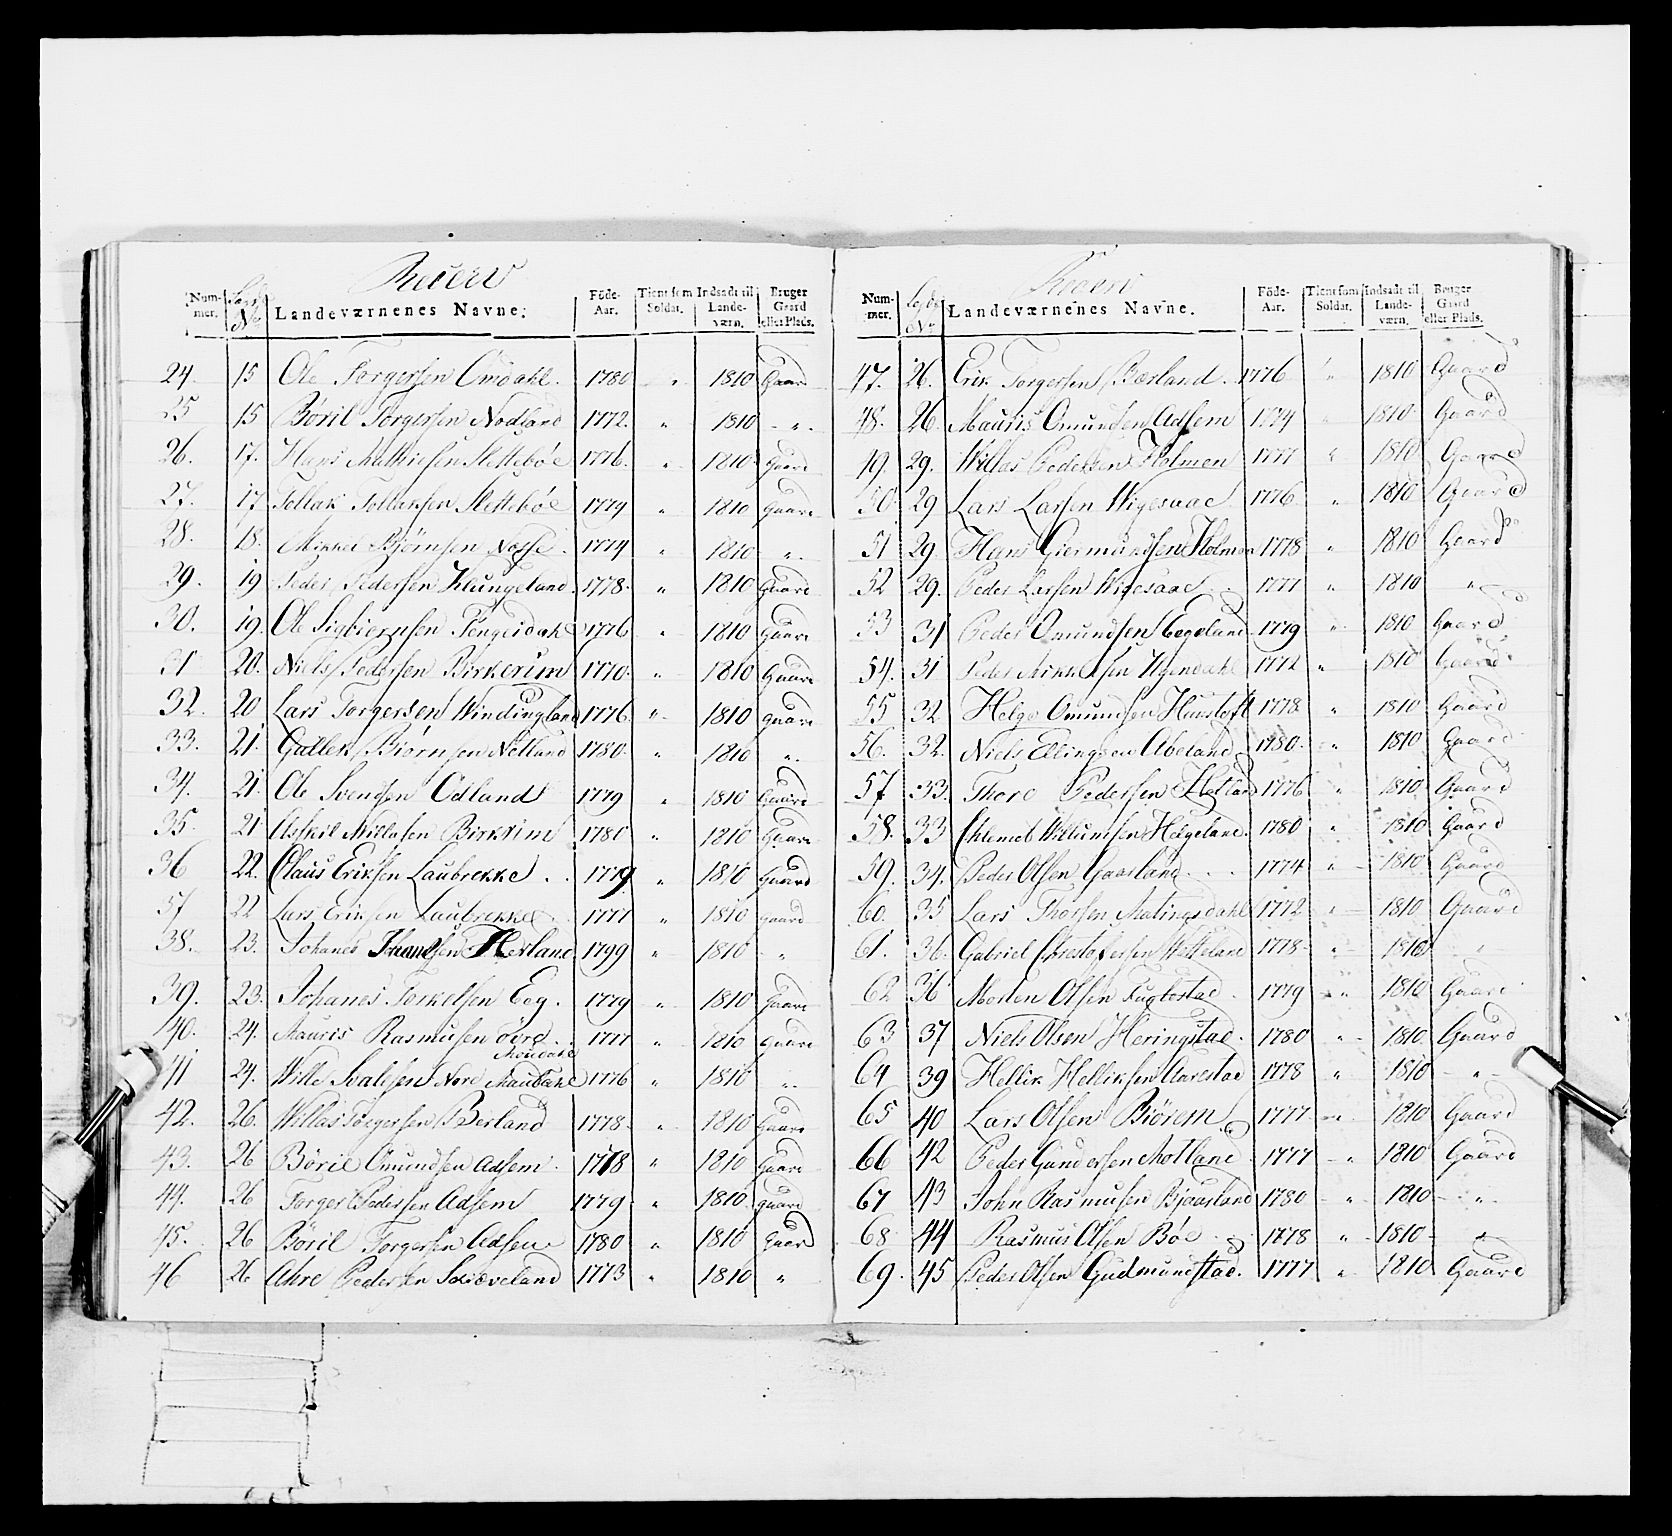 Reserv
Num- mer. Lægds No Landeværnenes Navne. Föde- Aar. Tient som Soldat. Indsadt til Lande- værn. Bruger Gaard eller Plads.
24. 15 Ole Torgersen Omdahl. 1780 " 1810 Gaard
25 15 Böril Torgersen Nodland 1772. " 1810 - " -
26. 17. Hans Mathiesen Slettebøe 1776. " 1810 Gaard
27. 17 Tollak Tollaksen Slettebøe 1779 " 1810 Gaard
28. 18. Mikkel Bjørnsen 1774 " 1810 "
29. 19 Peder Pedersen Klungeland. 1778. " 1810 Gaard
30. 19. Ole Sigbiernsen Tengesdahl 1776 " 1810 Gaard
31 20. Niels Pedersen Birkerum 1770. " 1810 Gaard
32. 20 Lars Torgersen Windingland 1776. " 1810 gaard
33. 21. Gullek Biørnsen Netland 1780. " 1810 "
34. 21. Ole Svendsen Odland 1779 " 1810 Gaard
35 21 Asskil Niklasen Birkrim 1780 " 1810 Gaard
36 22. Claus Eriksen Laubrekke . . 1779 " 1810 Gaard
37 22 Lars Eriksen Laubrekke 1777 " 1810 gaard
38. 23. Johanes Hansen Hetland 1799 " 1810 "
39. 23. Johanes Torkelsen Eeg. 1779 " 1810 Gaard
40. 24. Mauris Rasmusen övre Moudahl 1777 " 1810 gaard
41 24. Wille Svalesen Nore Maudahl 1776 " 1810 "
42. 26. Willas Torgersen Berland 1778. " 1810 Gaard
43. 26 Böril Omundsen Adsem. 1778 " 1810 Gaard
44. 26 Torger Pedersen Adsem 1779 " 1810 gaard
45. 26 Böril Torgersen Adsem 1780 " 1810 Gaard
46 26 Ahre Pedersen Skieveland 1773 " 1810 "
Reserv
Num- mer. Lægds No Landeværnenes Navne. Föde- Aar. Tient som Soldat. Indsadt til Lande- værn. Bruger Gaard eller Plads.
47. 26. Erik Torgersen Bærland. 1776 " 1810 Gaard
48. 26. Mauris Omundsen Adsem 1774 " 1810 Gaard
49. 29. Willas Pedersen Holmen 1777 " 1810 Gaard
50 29 Lars Larsen Wigesaae 1776 " 1810 Gaard
51 29. Hans Giermundsen Holmen 1778 " 1810 Gaard
52 29. Peder Larsen Wigesaae 1777 " 1810 "
53 31 Peder Omundsen Eegeland. 1779 " 1810 Gaard
54. 31 Peder Mikkelsen 1772 " 1810 Gaard
55 32 Helge Omundsen 1778. " 1810 Gaard
56. 32. Niels Ellingsen Abeland 1780. " 1810 Gaard
57 33. Thore Pedersen Hetland 1776 " 1810 Gaard
58. 33 Helgeland. 1780 " 1810 Gaard
59. 34. Peder Olsen Gaarland . . . 1774 " 1810 Gaard
60. 35 Lars Thorsen Malingsdahl 1772 " 1810 Gaard
61. 36. Gabriel Christophersen Wetteland 1778 " 1810 "
62 36 Morten Olsen Fuglestad. 1779 " 1810 Gaard
63 37 Niels Olsen Heringstad. 1780 " 1810 Gaard
64 39 Hellik Helliksen Aarestad 1778 " 1810 "
65 40 Lars Olsen Biörem 1777 " 1810 Gaard
66 42 Peder Gundersen Motland. 1777 " 1810 Gaard
67 43 John Rasmusen Bjaarland 1780 " 1810 "
68 44 Rasmus Olsen Bóe 1778 " 1810 "
69. 45 Peder Olsen Gudmundstad. 1777 " 1810 Gaard